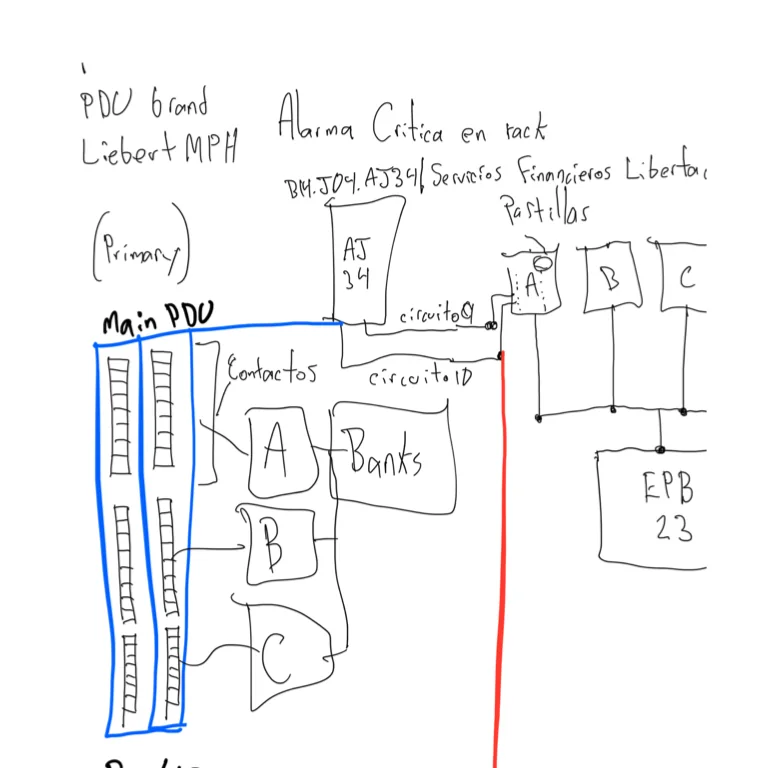 PDU brand
Liebert MPH
Alarma Critica en rack
B14.J04.AJ34/ Servicios Financieros
Pastillas
(Primary)
AJ
34
A
B
C
circuito 9
Main PDU
Contactos
circuito 10
A
Banks
B
C
EPB
23